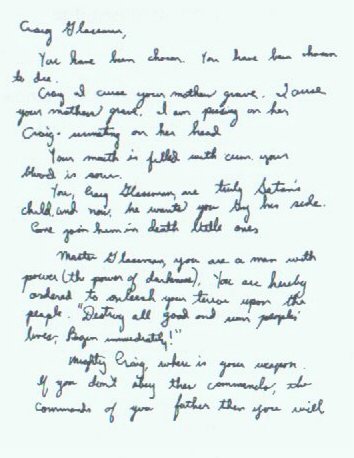 Craig Glassman,
You have been chosen. You have been chosen
to die.
Craig I curse your mother grave. I curse
your mothers grave. I am pissing on her
Craig. urinating on her head
Your mouth is filled with cum. your
blood is sour.
You, Craig Glassman, are truly Satan's
child, and now, he wants you by his side.
Come join him in death little ones
Master Glassman, you are a man with
power (the power of darkness). You are hereby
ordered to unleash your terror upon the
people. "Destroy all good and ruin peoples'
lives. Begin immediately!"
Mighty Craig, where is your weapon.
If you don't obey these commands, the
commands of your father then you will